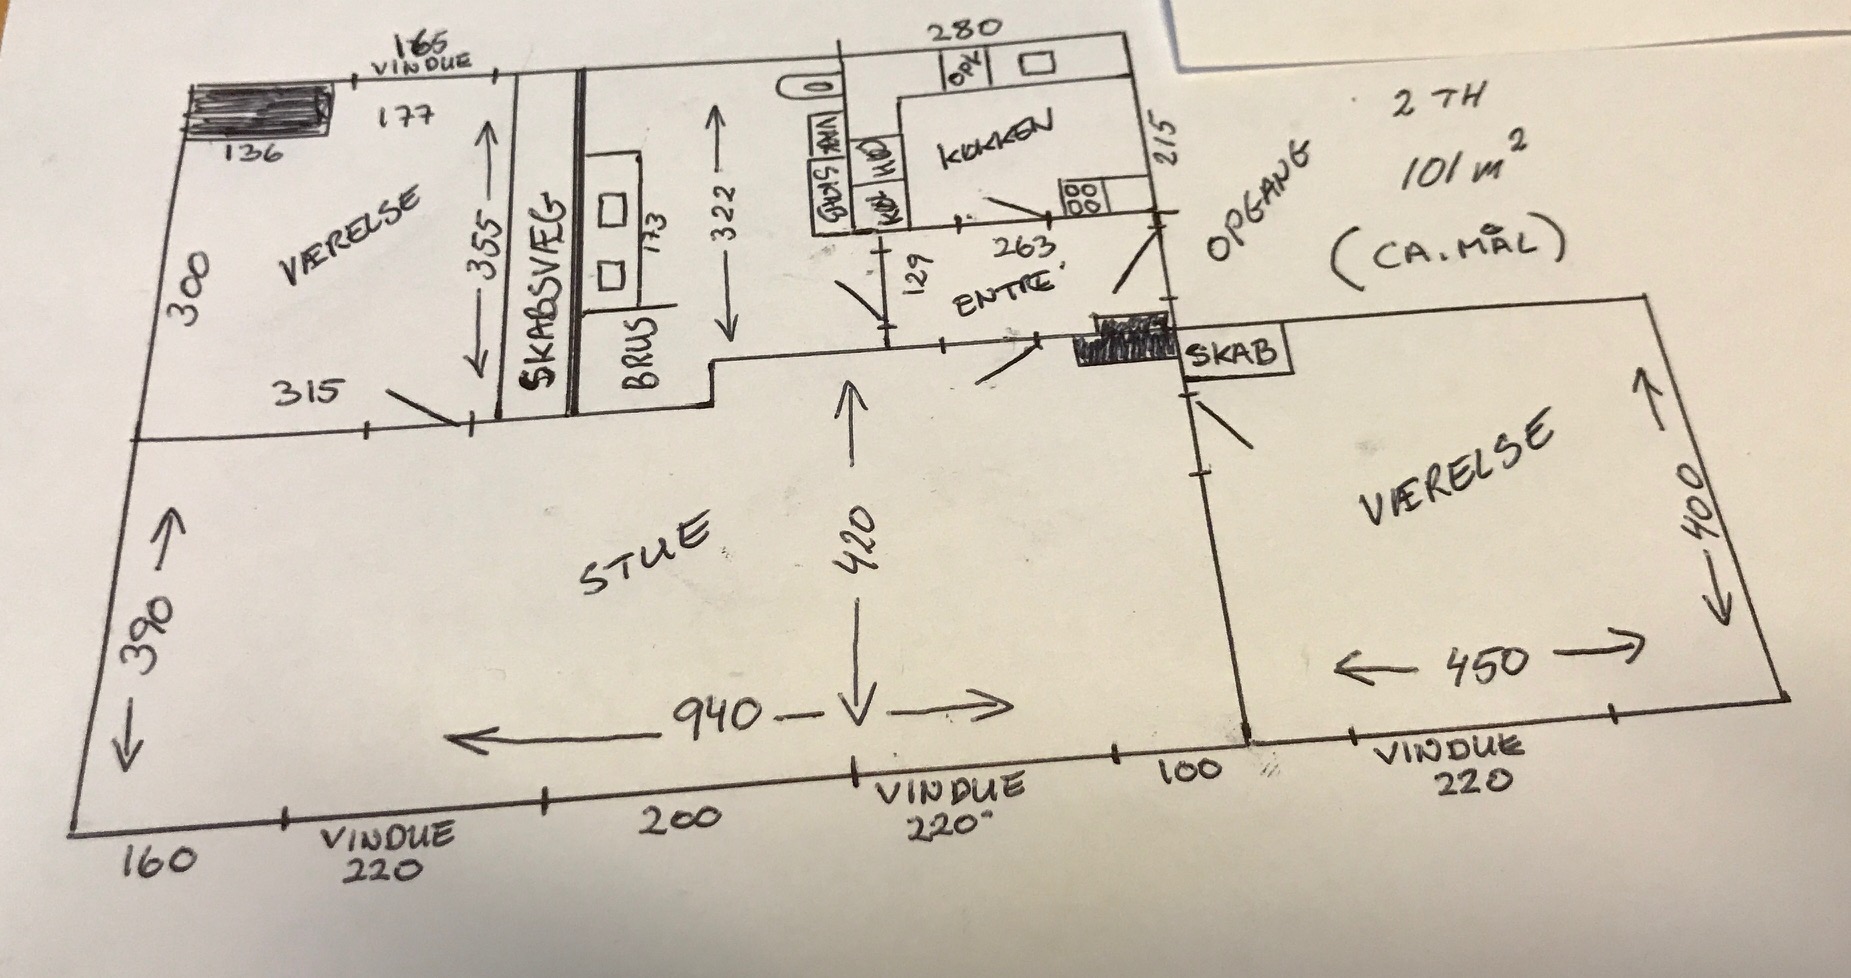 165
VINDUE
280
177
136
OPV
KØKKEN
215
2 TH
101 m²
(CA. MÅL)
OPGANG
VÆRELSE
300
355
SKABSVÆG
173
322
VASK
SKAB
KØL
263
129
ENTRE'
BRUS
315
SKAB
VÆRELSE
400
STUE
420
390
940
450
160
VINDUE
220
200
VINDUE
220
100
VINDUE
220